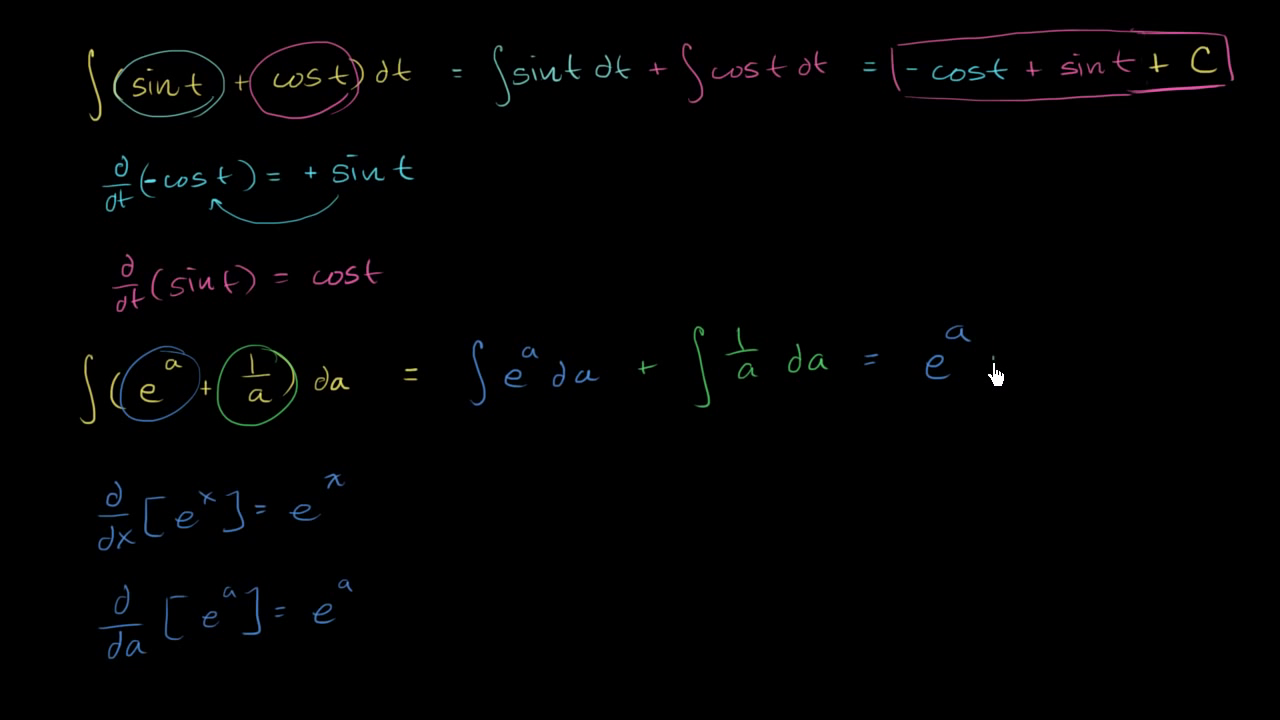 ∫(sin t + cos t) dt = ∫ sin t dt + ∫ cos t dt = - cos t + sin t + C
d/dt (-cos t) = + sin t
d/dt (sin t) = cos t
∫(e^a + 1/a) da = ∫ e^a da + ∫ 1/a da = e^a
d/dx [e^x] = e^x
d/da [e^a] = e^a